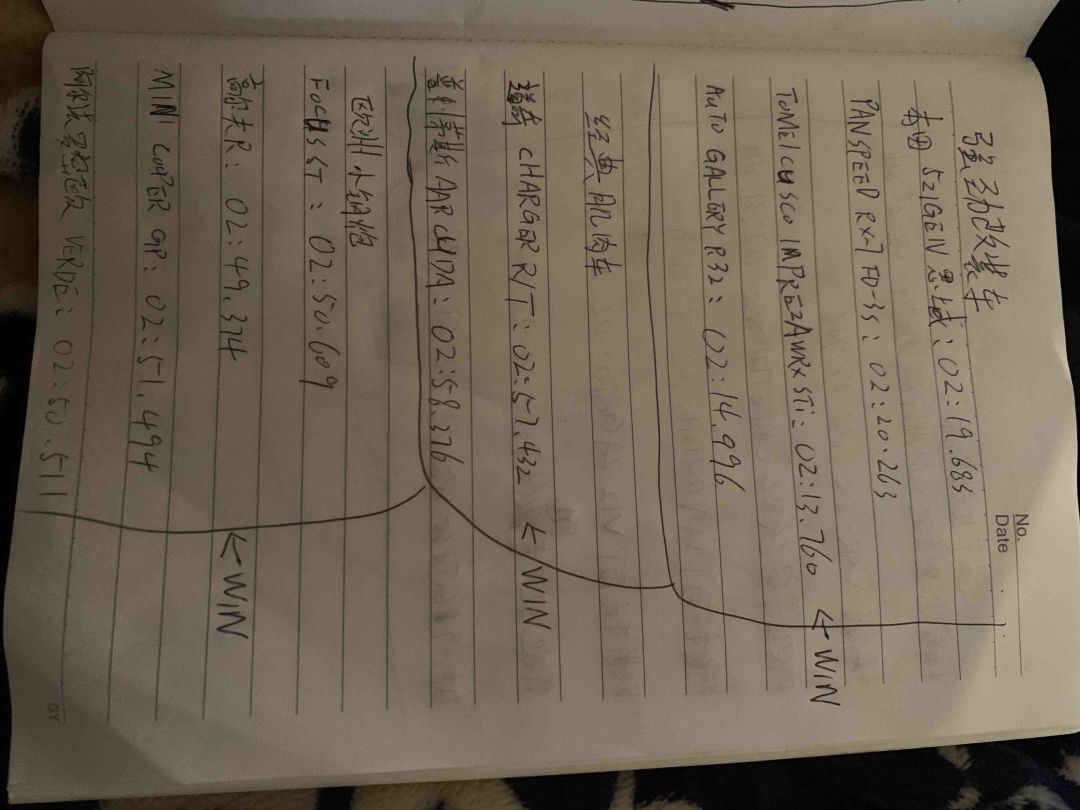 No.
Date
强劲改装车
本田 521GEN 思域：02:19.683
PANSPEED RX-7 FD-3S：02:20.263
TOMEI CUSCO IMPREZA WRX STi：02:13.760 ← WIN
AUTO GALLERY R32：02:14.996
经典肌肉车
道奇 CHARGER R/T：02:57.432 ← WIN
普利茅斯 AAR CUDA：02:58.376
欧洲小钢炮
FOCUS ST：02:50.609
高尔夫R：02:49.374 ← WIN
MINI COOPER GP：02:51.494
VERDE：02:50.511
GY